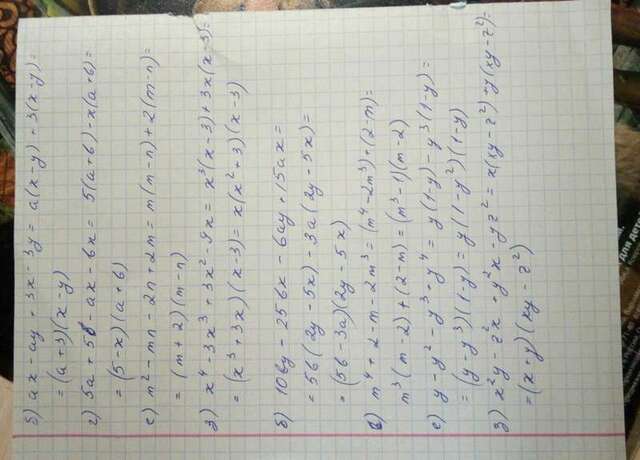 б) ax - ay + 3x - 3y = a(x-y) + 3(x-y) =
= (a+3)(x-y)
г) 5a + 5б - ax - бx = 5(a+б) - x(a+б) =
= (5-x)(a+б)
е) m² - mn - 2n + 2m = m(m-n) + 2(m-n) =
= (m+2)(m-n)
з) x⁴ - 3x³ + 3x² - 9x = x³(x-3) + 3x(x-3) =
= (x³+3x)(x-3) = x(x²+3)(x-3)
б) 10бy - 25бx - 6ay + 15ax =
= 5б(2y - 5x) - 3a(2y - 5x) =
= (5б - 3a)(2y - 5x)
m⁴ + 2 - m - 2m³ = (m⁴ - 2m³) + (2-m) =
m³(m-2) + (2-m) = (m³-1)(m-2)
е) y - y² - y³ + y⁴ = y(1-y) - y³(1-y) =
= (y-y³)(1-y) = y(1-y²)(1-y)
з) x²y - z²x + y²x - yz² = x(xy-z²) + y(xy-z²) =
= (x+y)(xy-z²)
Для дет